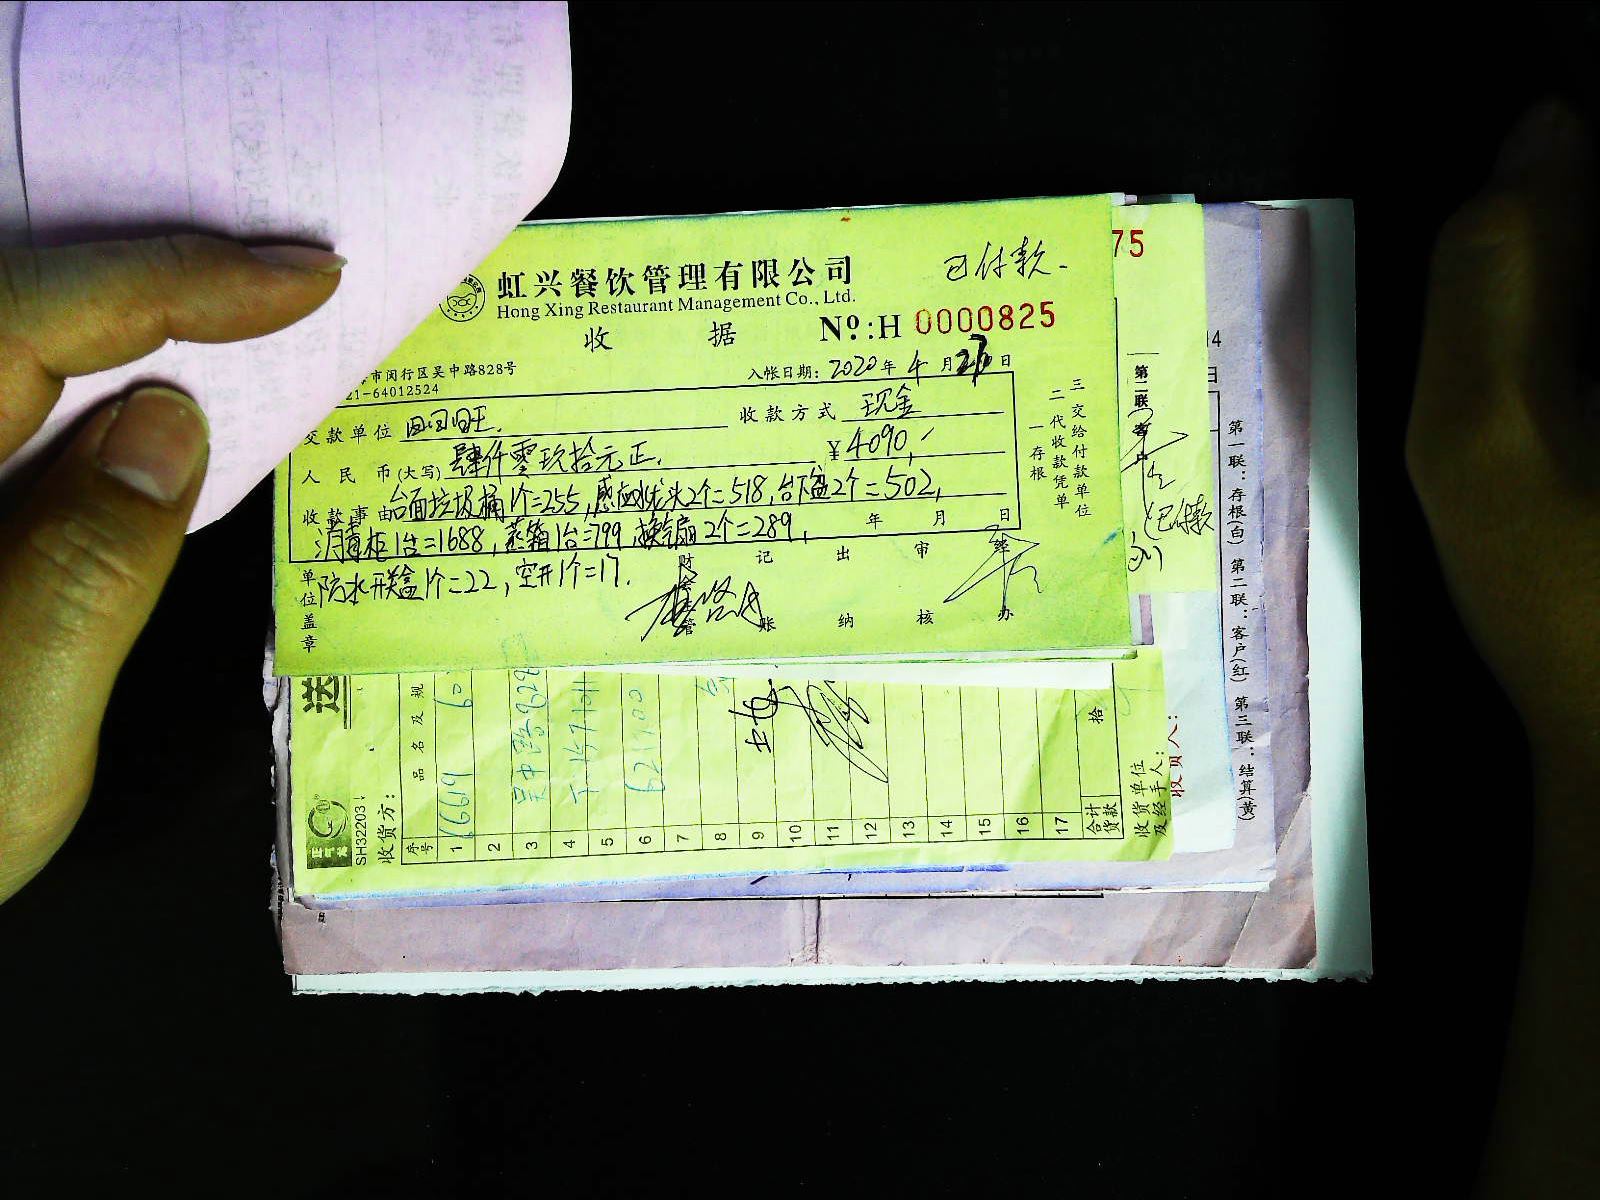 虹兴餐饮管理有限公司
已付款
Hong Xing Restaurant Management Co., Ltd.
收 据 Nº.:H 0000825
市闵行区吴中路828号
21-64012524
入帐日期: 2020年4月 日
交款单位 田田旺. 收款方式 现金
人民币(大写) 肆仟零玖拾元正. ¥4090,
收款事由 台面垃圾桶1个=255,感应水龙头2个=518,台下盆2个=502,
消毒柜1台=1688,蒸箱1台=799,换气扇2个=289,
年 月 日
防水开关盒1个=22,空开1个=17.
单位盖章
财 管
记 账
出 纳
审 核
经 办
一存根
二代收款凭单
三交给付款单位
75
第二联 客户
已付款
14
日
第一联:存根(白) 第二联:客户(红) 第三联:结算(黄)
送
SH322031
收货方:
序号
品名及规
1 16619
2
3
4
5
6
7
8
9
10
11
12
13
14
15
16
17
合计货款
拾
收货单位及经手人:
收货人: